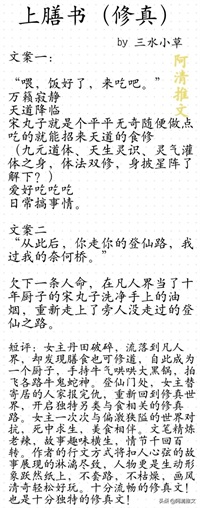 上膳书（修真）
by 三水小草
阿清推文
文案一：
“喂，饭好了，来吃吧。”
万籁寂静
天道降临
宋丸子就是个平平无奇随便做点
吃的就能招来天道的食修
（九元道体、天生灵识、灵气灌
体之身，体法双修，身披星阵了
解下？）
爱好吃吃吃
日常搞事情。
文案二
“从此后，你走你的登仙路，我
过我的奈何桥。”
欠下一条人命，在凡人界当了十
年厨子的宋丸子洗净手上的油
烟，重新走上了旁人没走过的登
仙之路。
短评：女主丹田破碎，流落到凡人
界，却发现膳食也可修道，自此成为
一个厨子，手持牛气哄哄大黑锅，拍
飞各路牛鬼蛇神。登仙门处，女主替
寄居的人家报完仇，重新回到修真世
界，开启独特另类与食相关的修真
路。女主一次次与偏激狭隘的世界对
抗，死中求生，美食相伴。文笔精炼
老辣，故事趣味横生，情节十回百
转。作者的行文方式将扣人心弦的故
事展现的淋漓尽致，人物更是生动形
象跃然纸上，不套路，不枯燥，画风
清奇轻松好玩。十分流畅的修真文！
也是十分独特的修真文！